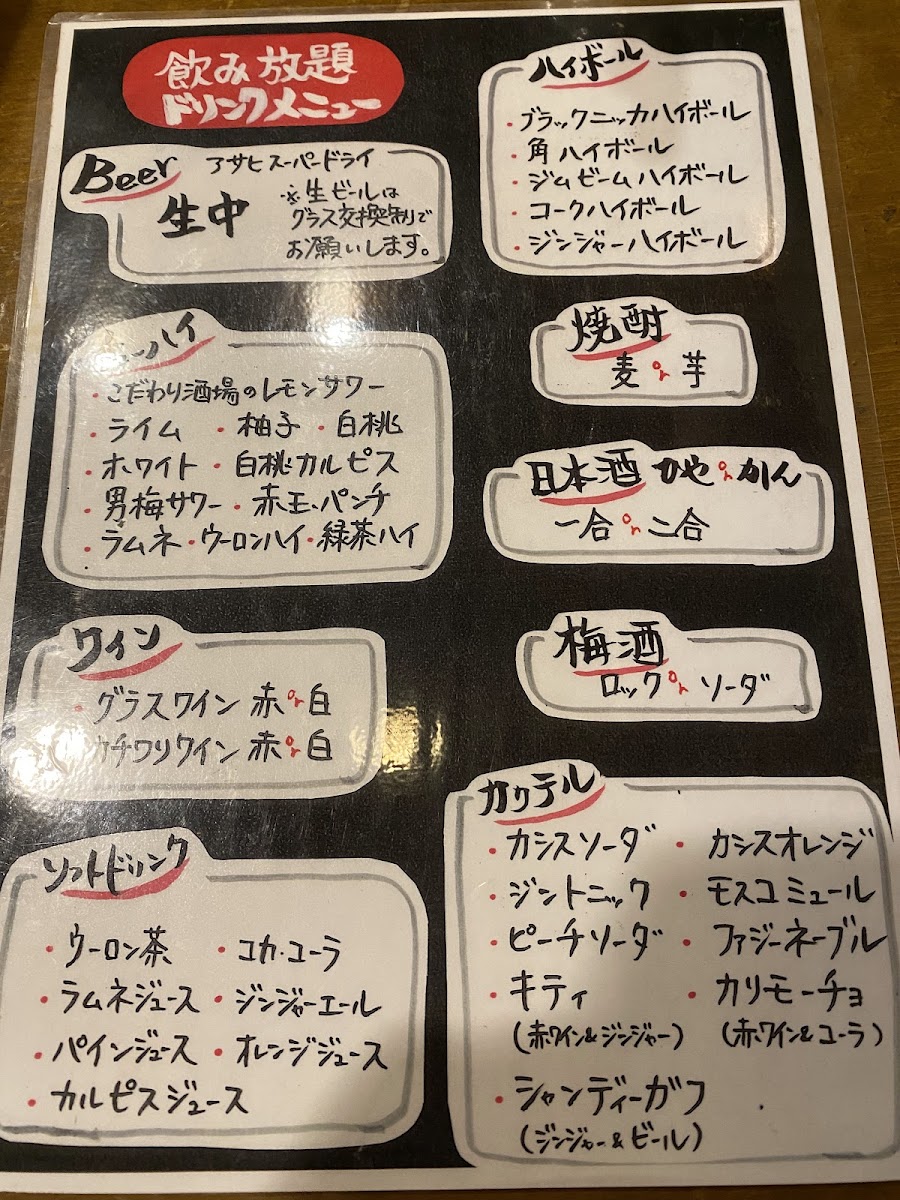 飲み放題
ドリンクメニュー
Beer
アサヒスーパードライ
生中
※生ビールは
グラス交換制で
お願いします。
ーハイ
・こだわり酒場のレモンサワー
・ライム ・柚子 ・白桃
・ホワイト ・白桃カルピス
・男梅サワー ・赤玉パンチ
・ラムネ ・ウーロンハイ ・緑茶ハイ
ワイン
・グラスワイン 赤or白
カチワリワイン 赤or白
ソフトドリンク
・ウーロン茶 ・コカ・コーラ
・ラムネジュース ・ジンジャーエール
・パインジュース ・オレンジジュース
・カルピスジュース
ハイボール
・ブラックニッカハイボール
・角ハイボール
・ジムビームハイボール
・コークハイボール
・ジンジャーハイボール
焼酎
麦or芋
日本酒 ひやorかん
一合or二合
梅酒
ロックorソーダ
カクテル
・カシスソーダ ・カシスオレンジ
・ジントニック ・モスコミュール
・ピーチソーダ ・ファジーネーブル
・キティ ・カリモーチョ
(赤ワイン&ジンジャー) (赤ワイン&コーラ)
・シャンディーガフ
(ジンジャー&ビール)